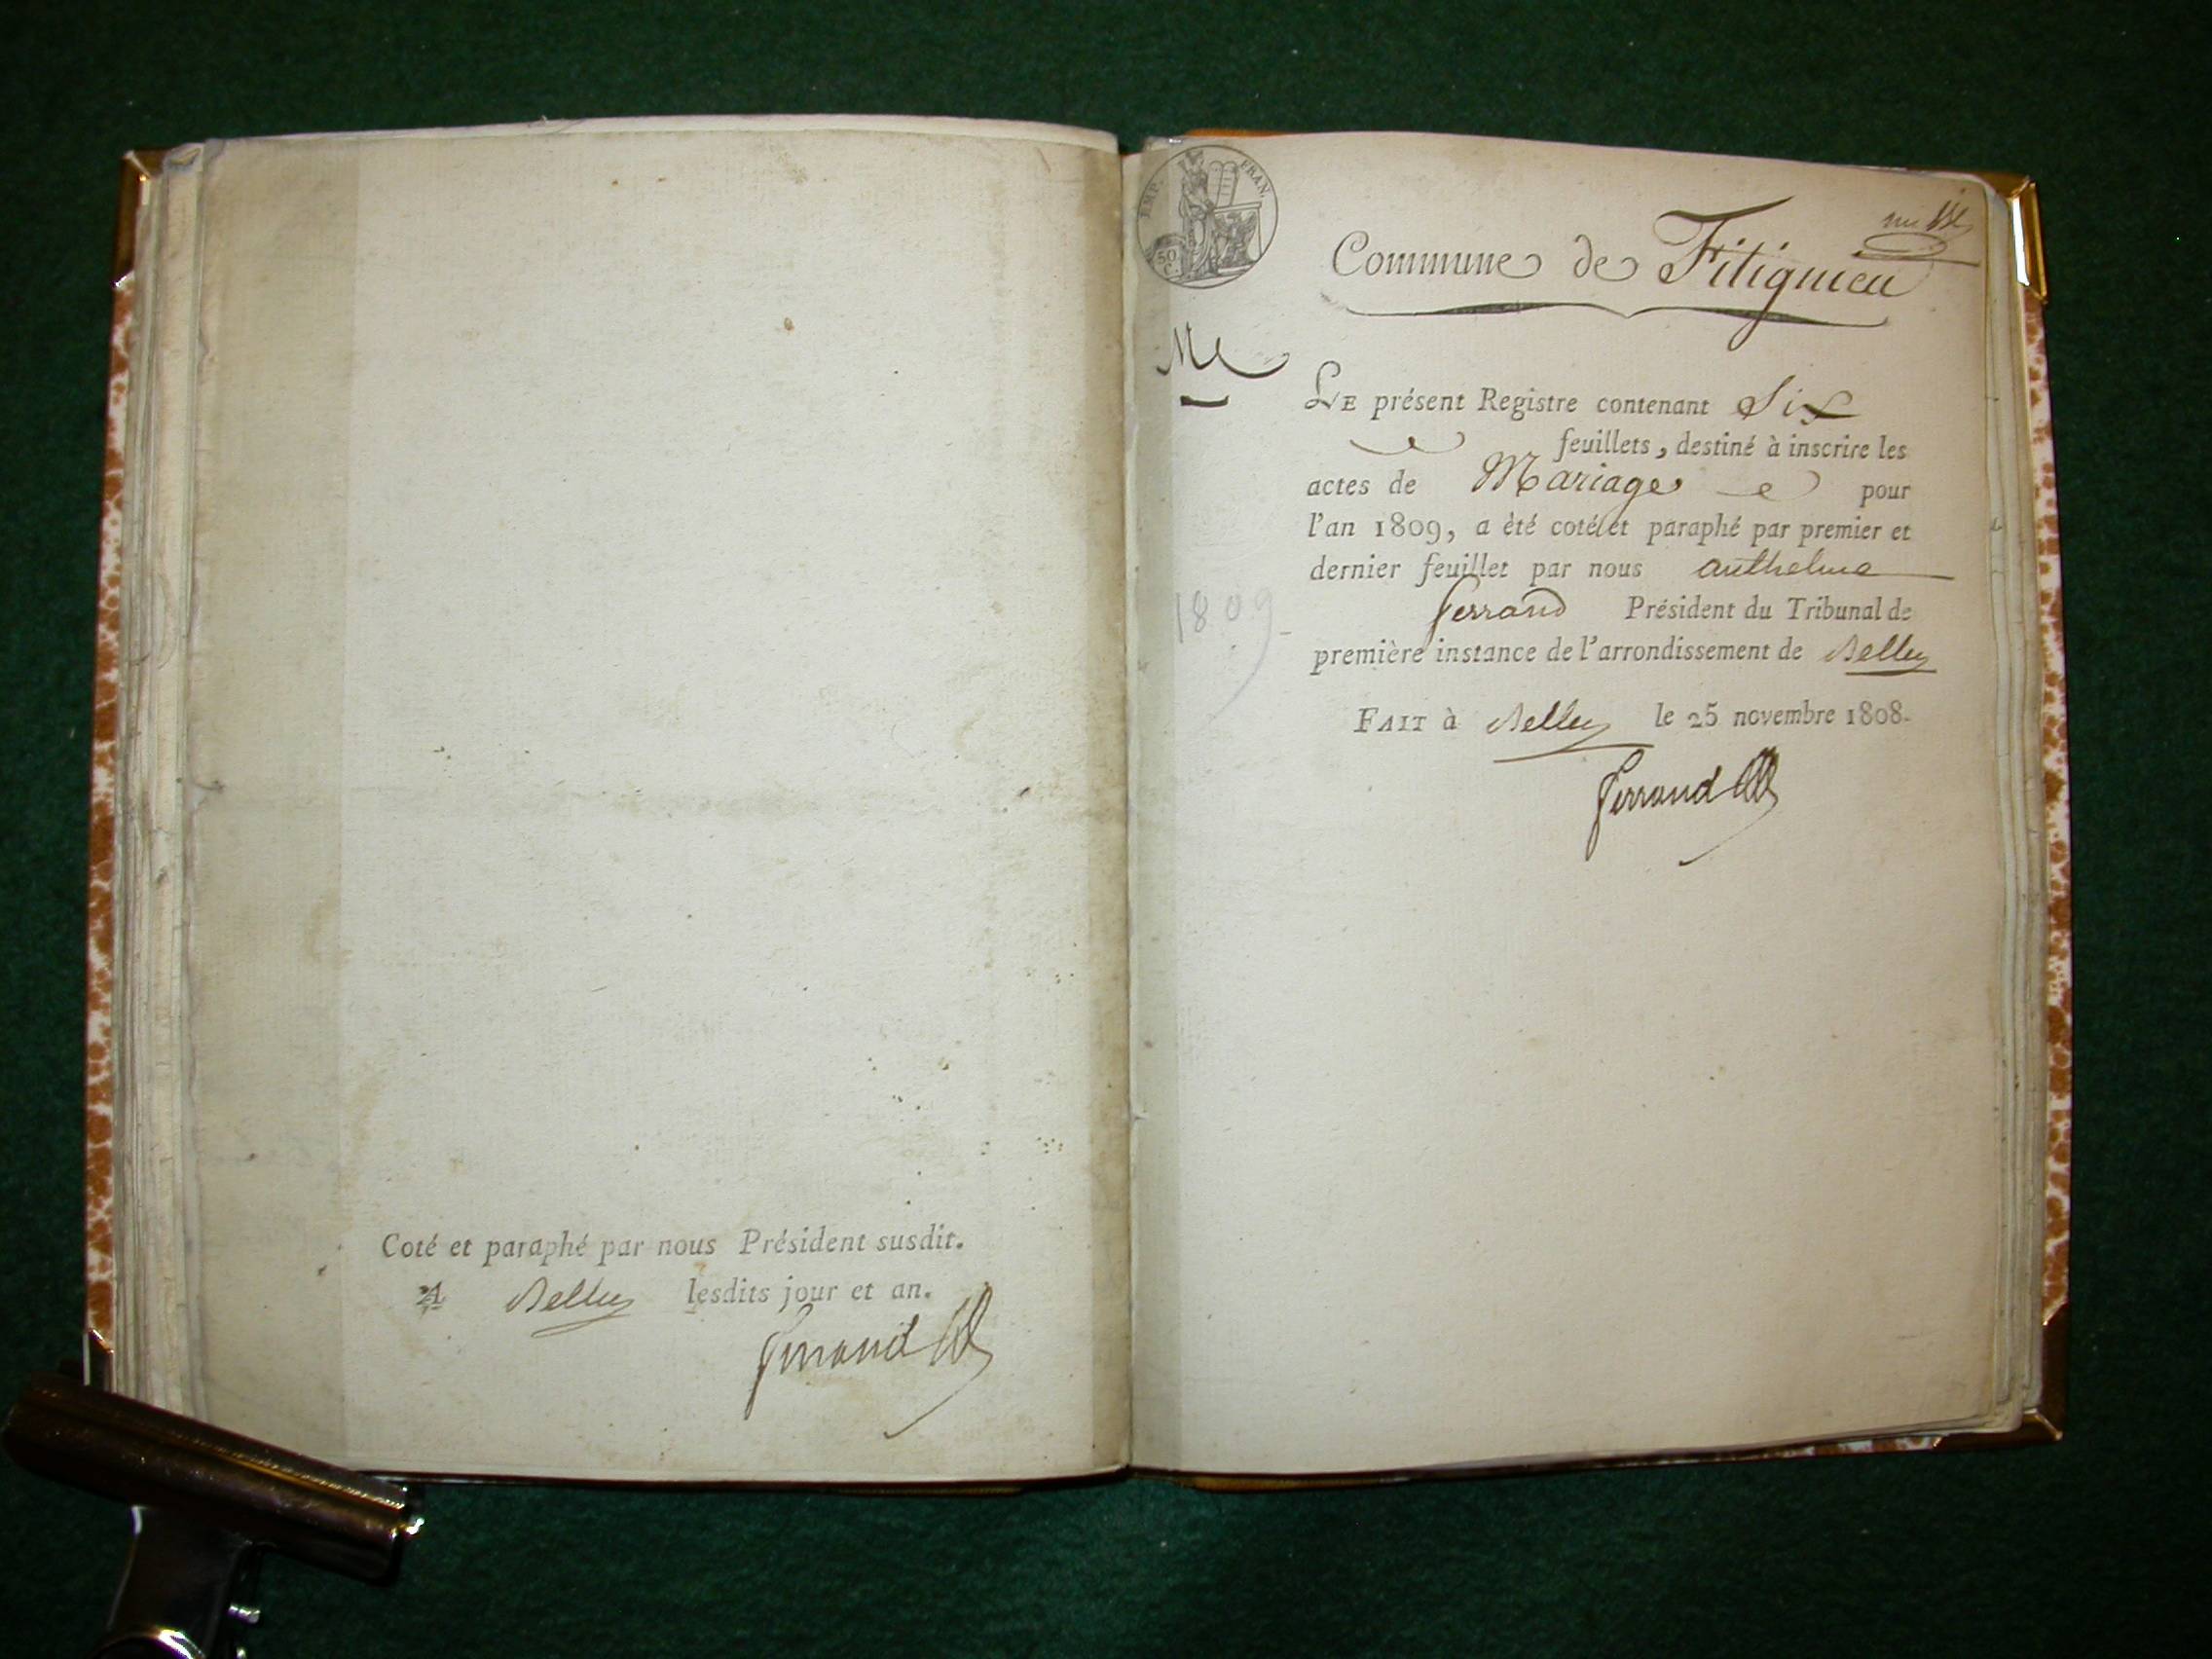 Coté et paraphé par nous Président susdit.
A Belley lesdits jour et an.
Ferrand
EMP. FRAN.
50
C.
Commune de Fitignieu
Me
LE présent Registre contenant Six
feuillets, destiné à inscrire les
actes de Mariage pour
l'an 1809, a èté coté et paraphé par premier et
dernier feuillet par nous anthelme
ferrand Président du Tribunal de
1809
première instance de l'arrondissement de Belley
FAIT à Belley le 25 novembre 1808.
Ferrand